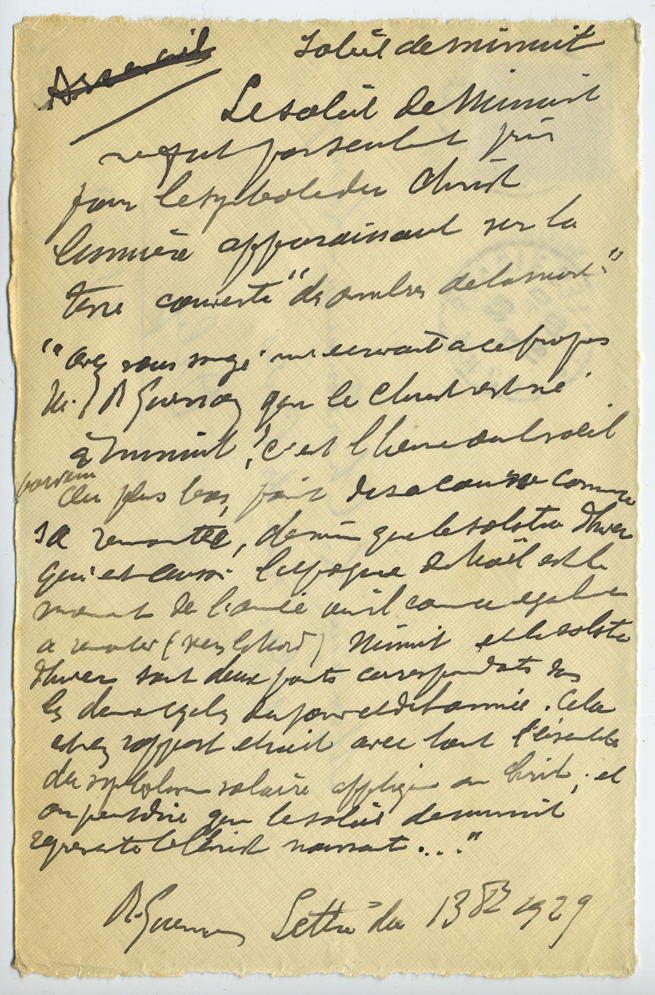 Soleil de minuit
Le soleil de Minuit
ne fut pas seulement pris
pour le symbole du Christ
lumière apparaissant sur la
terre couverte "des ombres de la mort."
"Avez vous songé m'écrivait à ce propos
M. R Guenon que le Christ est né
à minuit? c'est l'heure où le soleil
du plus bas point de sa course commence
sa remontée, de même que le solstice d'hiver
qui est aussi l'époque de Noël est le
moment de l'année où il commence également
à remonter (vers le Nord) Minuit et le solstice
d'hiver sont deux points correspondants dans
les deux cycles du jour et de l'année. Cela
est en rapport étroit avec tout l'ensemble
du symbolisme solaire appliqué au Christ; et
on peut dire que le soleil de minuit
représente le Christ naissant..."
R. Guenon Lettre du 13 8bre 1929